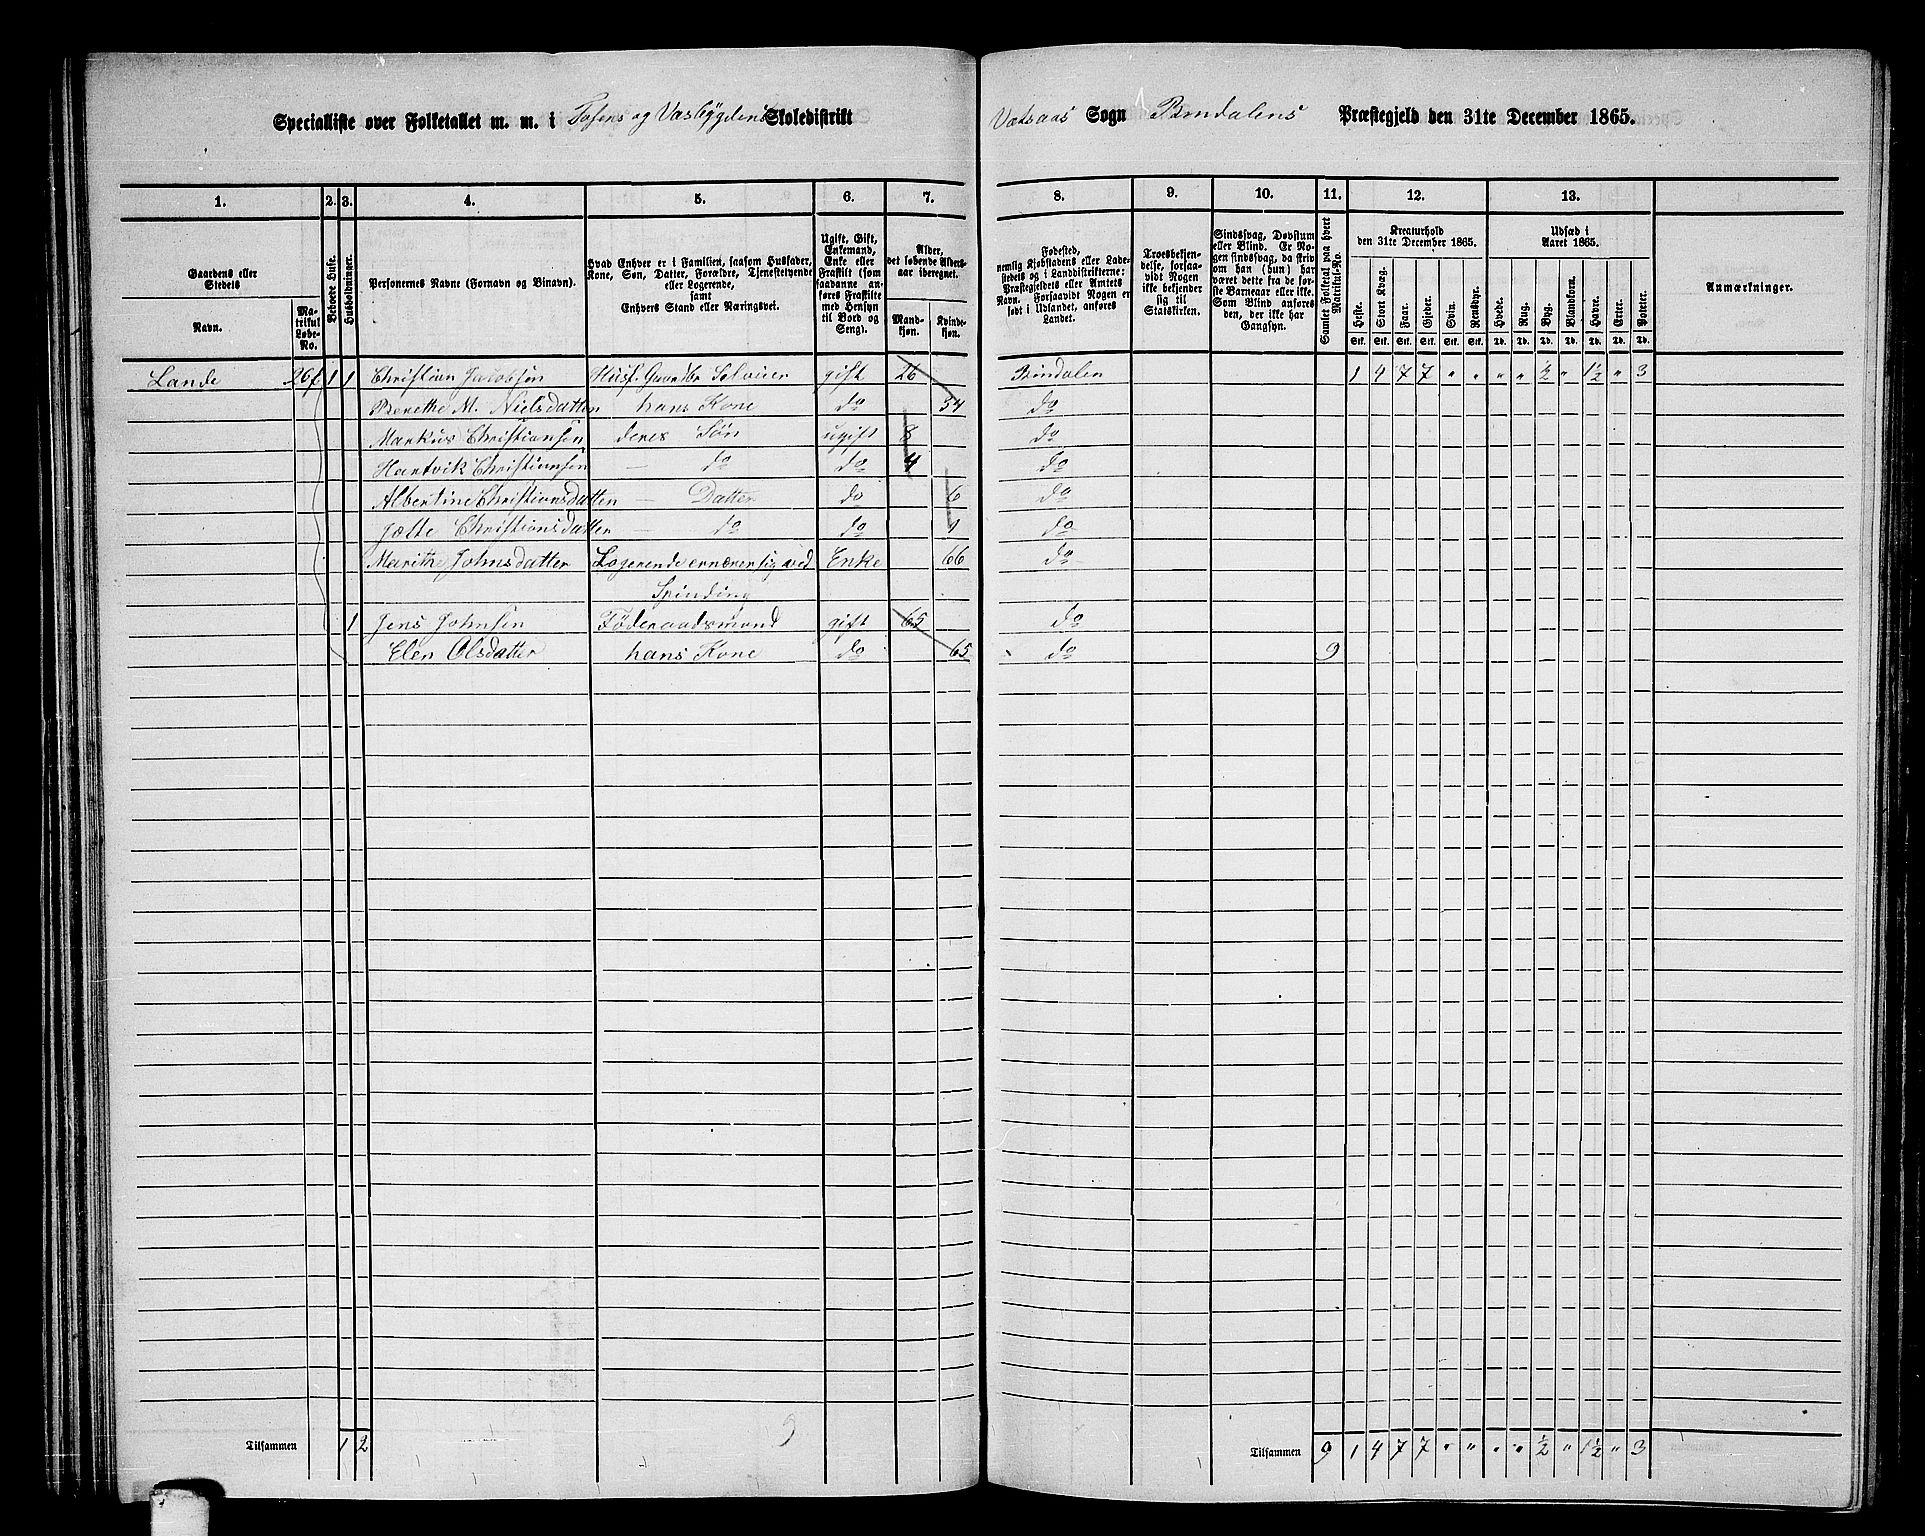 Specialliste over Folketallet m. m. i Tosens og Vasbygdens Skoledistrikt Vatsaas Sogn Bindalens Præstegjeld den 31te December 1865.
1. 2. 3. 4. 5. 6. 7. 8. 9. 10. 11. 12. 13.
Gaardens eller Stedets
Navn.
Matrikul Løbe-No.
Beboede Huse.
Husholdninger.
Personernes Navne (Fornavn og Binavn).
Hvad Enhver er i Familien, saasom Husfader, Kone, Søn, Datter, Forældre, Tjenestetyende eller Logerende, samt Enhvers Stand eller Næringsvei.
Ugift, Gift, Enkemand, Enke eller Fraskilt (som saadanne anføres Fraskilte med Hensyn til Bord og Seng).
Alder, det løbende Alders-aar iberegnet.
Mandkjøn. Kvindekjøn.
Fødested, nemlig Kjøbstadens eller Ladestedets og i Landdistrikterne: Præstegjeldets eller Amtets Navn. Forsaavidt Nogen er født i Udlandet, anføres Landet.
Troesbekjendelse, forsaavidt Nogen ikke bekjender sig til Statskirken.
Sindssvag, Døvstum eller Blind. Er Nogen sindssvag, da skrives om han (hun) har været dette fra de første Barneaar eller ikke. Som Blind anføres den, der ikke har Gangsyn.
Samlet Folketal paa hvert Matrikul-No.
Kreaturhold den 31te December 1865.
Heste. Stort Kvæg. Faar. Gjeder. Svin. Rensdyr.
Stk. Stk. Stk. Stk. Stk. Stk.
Udsæd i Aaret 1865.
Hvede. Rug. Byg. Blandkorn. Havre. Erter. Poteter.
Td. Td. Td. Td. Td. Td. Td.
Anmærkninger.
Lande 26f 1 1 Christian Jacobsen Husf. Gaardbr Selveier gift 26 Bindalen 1 4 7 7 " " " " ½ " 1½ " 3
Berethe M. Nielsdatter hans Kone do 34 do
Markus Christiansen deres Søn ugift 8 do
Hartvik Christiansen — do do 4 do
Albertine Christiansdatter — Datter do 6 do
Jætte Christiansdatter — do do 1 do
Marithe Johnsdatter Logerende ernærer sig ved Enke 66 do
Spinding
1 Jens Johnsen Føderaadsmand gift 65 do
Elen Olsdatter hans Kone do 65 do 9
9
Tilsammen 1 2 Tilsammen 9 1 4 7 7 " " " " ½ " 1½ " 3